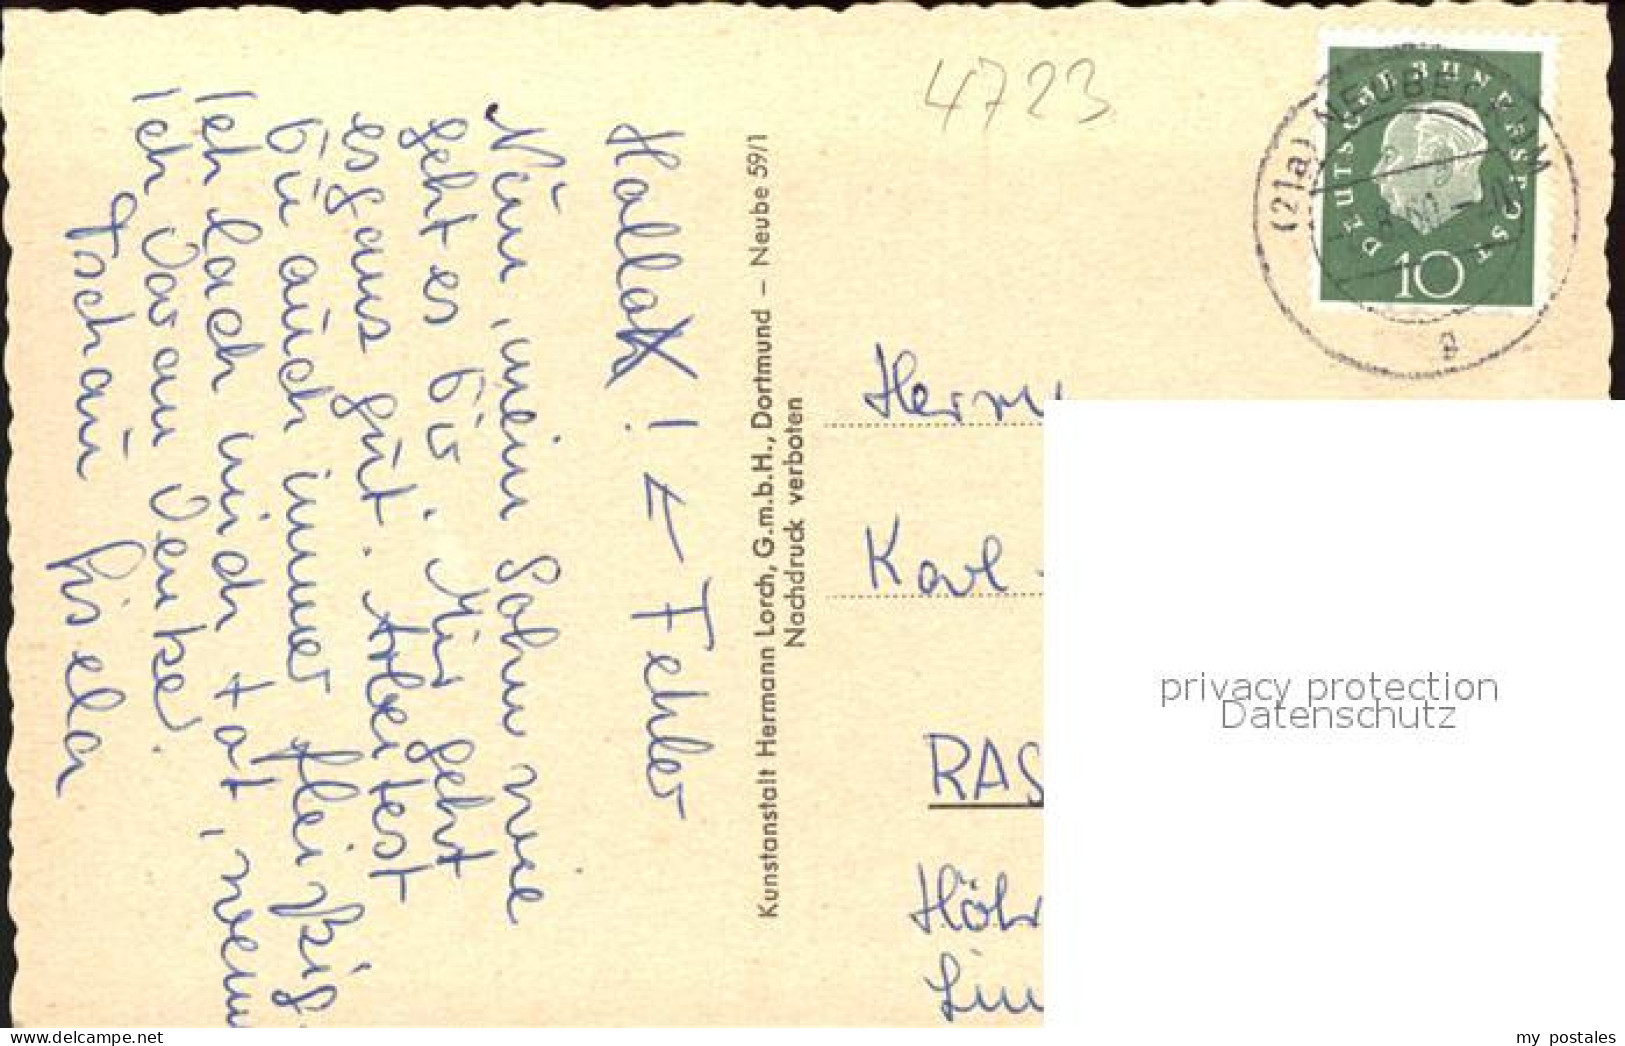 Hallak! ← Fehler
Nun, mein Sohn wie
geht es Dir. Mir geht
es ganz gut. Arbeitest
Du auch immer fleißig.
Ich lach mich tot, wenn
ich daran denke.
Tschau Gisela
Kunstanstalt Hermann Lorch, G.m.b.H., Dortmund – Neube 59/1
Nachdruck verboten
4723
DEUTSCHE BUNDESPOST
10
(21a) NEUBECKUM
a
Herrn
Karl
RAS
Höhr
Lin
privacy protection
Datenschutz
my postales